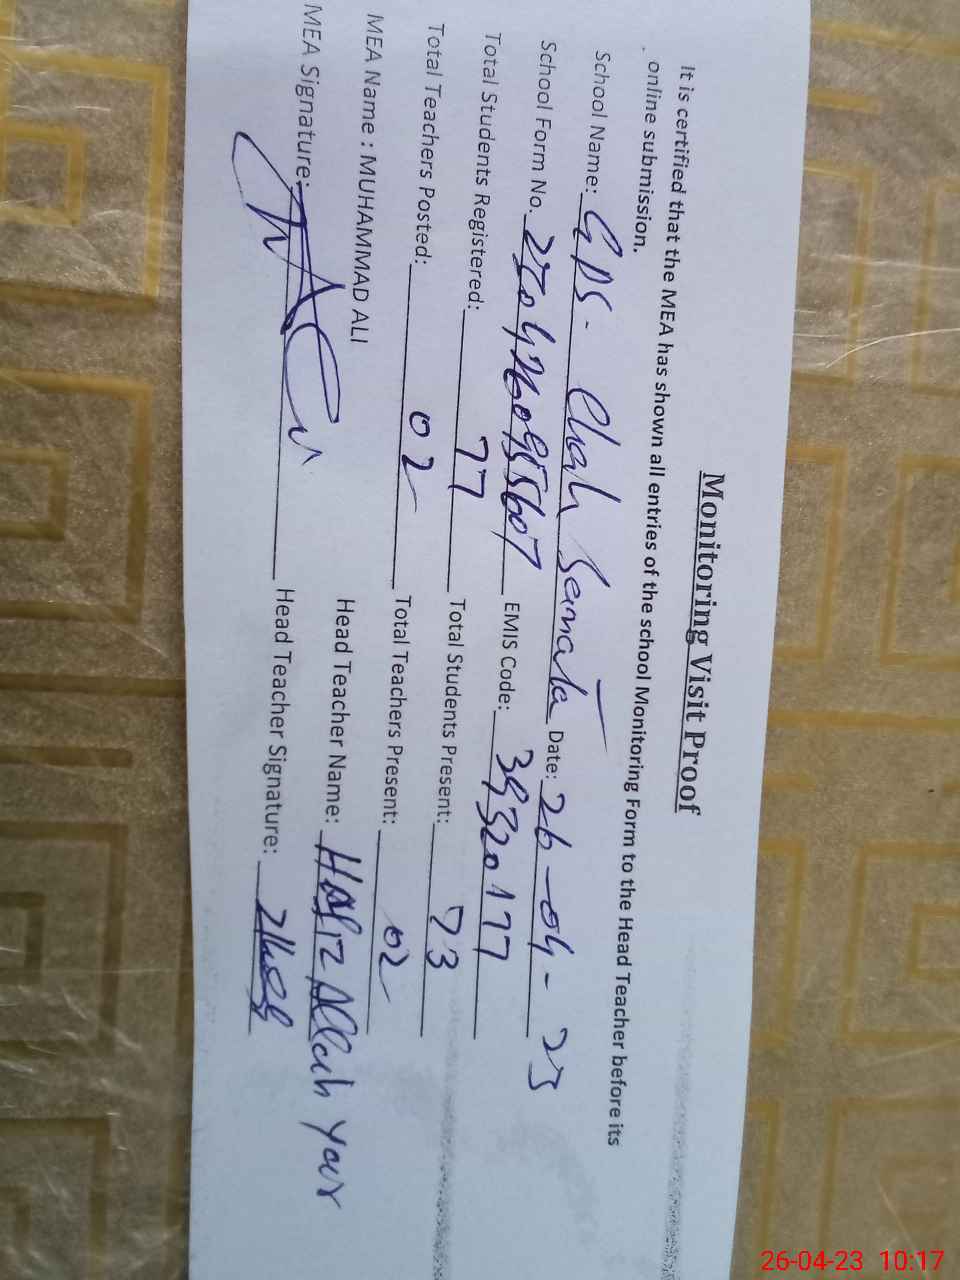 Monitoring Visit Proof
It is certified that the MEA has shown all entries of the school Monitoring Form to the Head Teacher before its
online submission.
School Name: GPS - Chah Date: 26-04-23
School Form No. EMIS Code: 39320177
Total Students Registered: 77 Total Students Present: 73
Total Teachers Posted: 02 Total Teachers Present: 02
MEA Name : MUHAMMAD ALI Head Teacher Name: Hafiz Allah Yar
MEA Signature: Head Teacher Signature:
26-04-23 10:17